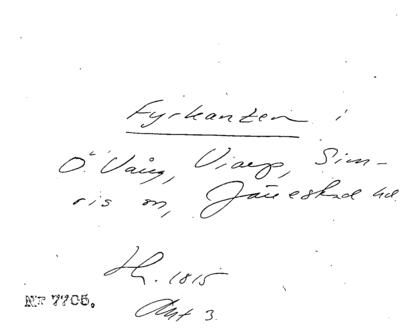 Fyrkanten i
Ö. Vång, Viarp, Sim-
ris sn, Järrestad hd
1815
NF 7705. 3.